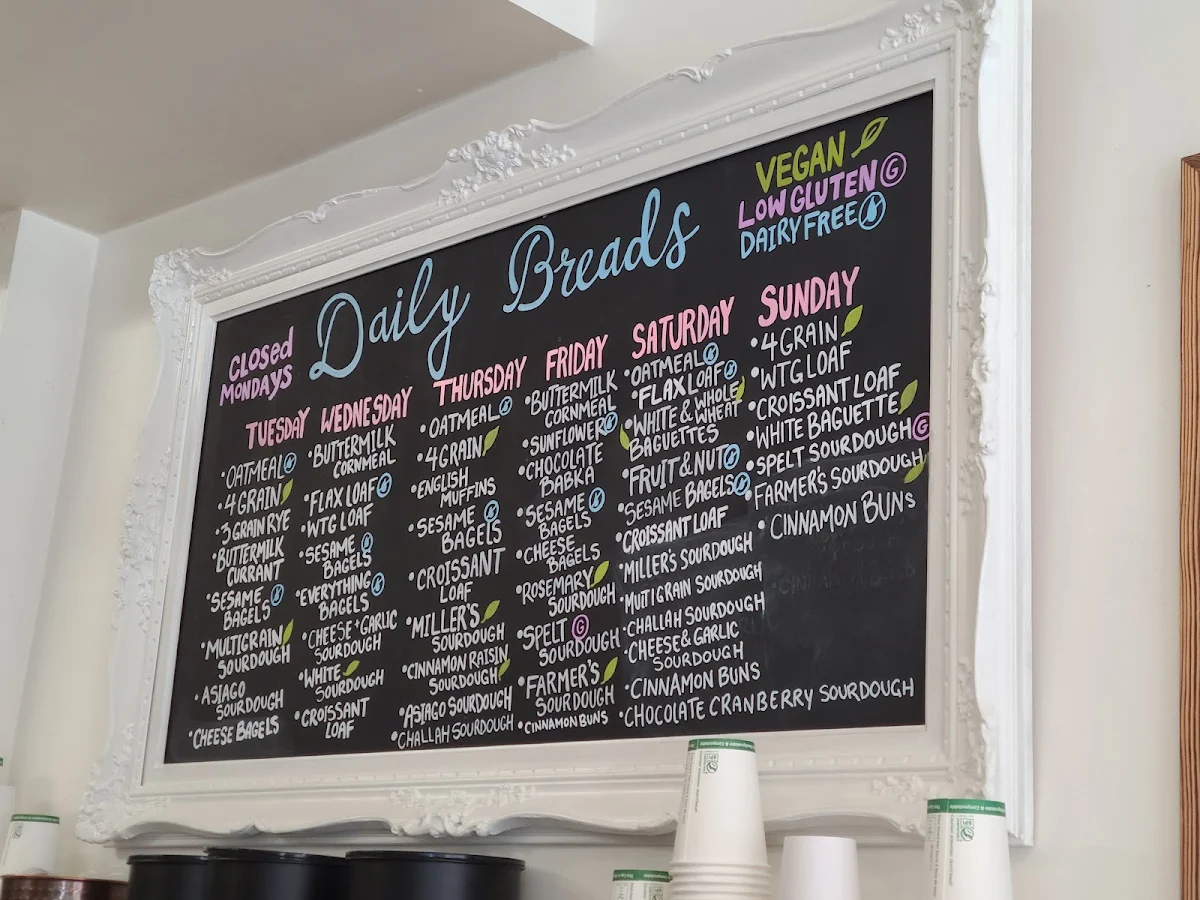 Daily Breads
VEGAN
LOW GLUTEN G
DAIRY FREE
CLOSED
MONDAYS
TUESDAY
•OATMEAL
•4 GRAIN
•3 GRAIN RYE
•BUTTERMILK
CURRANT
•SESAME
BAGELS
•MULTIGRAIN
SOURDOUGH
•ASIAGO
SOURDOUGH
•CHEESE BAGELS
WEDNESDAY
•BUTTERMILK
CORNMEAL
•FLAX LOAF
•WTG LOAF
•SESAME
BAGELS
•EVERYTHING
BAGELS
•CHEESE+GARLIC
SOURDOUGH
•WHITE
SOURDOUGH
•CROISSANT
LOAF
THURSDAY
•OATMEAL
•4 GRAIN
•ENGLISH
MUFFINS
•SESAME
BAGELS
•CROISSANT
LOAF
•MILLER'S
SOURDOUGH
•CINNAMON RAISIN
SOURDOUGH
•ASIAGO SOURDOUGH
•CHALLAH SOURDOUGH
FRIDAY
•BUTTERMILK
CORNMEAL
•SUNFLOWER
•CHOCOLATE
BABKA
•SESAME
BAGELS
•CHEESE
BAGELS
•ROSEMARY
SOURDOUGH
•SPELT G
SOURDOUGH
•FARMER'S
SOURDOUGH
•CINNAMON BUNS
SATURDAY
•OATMEAL
•FLAX LOAF
•WHITE & WHOLE
WHEAT
BAGUETTES
•FRUIT & NUT
•SESAME BAGELS
•CROISSANT LOAF
•MILLER'S SOURDOUGH
•MUTIGRAIN SOURDOUGH
•CHALLAH SOURDOUGH
•CHEESE & GARLIC
SOURDOUGH
•CINNAMON BUNS
•CHOCOLATE CRANBERRY SOURDOUGH
SUNDAY
•4 GRAIN
•WTG LOAF
•CROISSANT LOAF
•WHITE BAGUETTE
•SPELT SOURDOUGH G
•FARMER'S SOURDOUGH
•CINNAMON BUNS